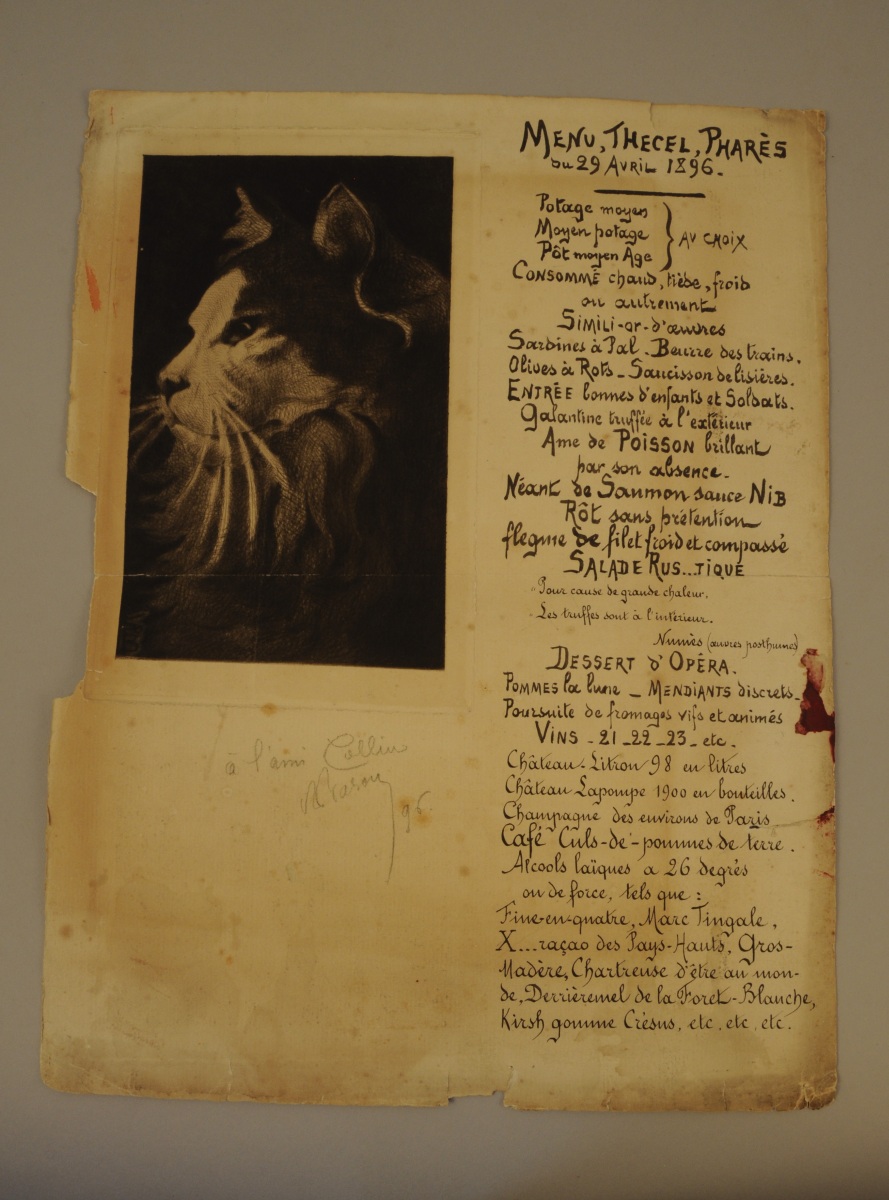 MENU, THECEL, PHARÈS
du 29 AVRIL 1896.
Potage moyen
Moyen potage
Pôt moyen Age
AU CHOIX
CONSOMMÉ chaud, tiède, froid
ou autrement
SIMILI-or-d'œuvres
Sardines à Pal. Beurre des trains.
Olives à Rots _ Saucisson de lisières.
ENTRÉE bonnes d'enfants et Soldats.
Galantine truffée à l'extérieur
Ame de POISSON brillant
par son absence.
Néant de Saumon sauce NIB
Rôt sans prétention
flegme de filet froid et compassé
SALADE RUS...TIQUE
Pour cause de grande chaleur.
Les truffes sont à l'intérieur.
Numès (œuvres posthumes)
DESSERT d'OPÉRA.
POMMES la lune _ MENDIANTS discrets_
Poursuite de fromages vifs et animés
VINS - 21 _ 22 _ 23 _ etc.
Château-Litron 98 en litres
Château Lapompe 1900 en bouteilles.
Champagne des environs de Paris
Café Culs-de-pommes de terre.
Alcools laïques a 26 degrés
ou de force, tels que :
Fine-en-quatre, Marc Tingale,
X...raçao des Pays-Hauts, Gros-
Madère, Chartreuse d'être au mon-
de, Derrièremel de la Foret-Blanche,
Kirsh gomme Crésus, etc, etc, etc.
à l'ami Collin
96